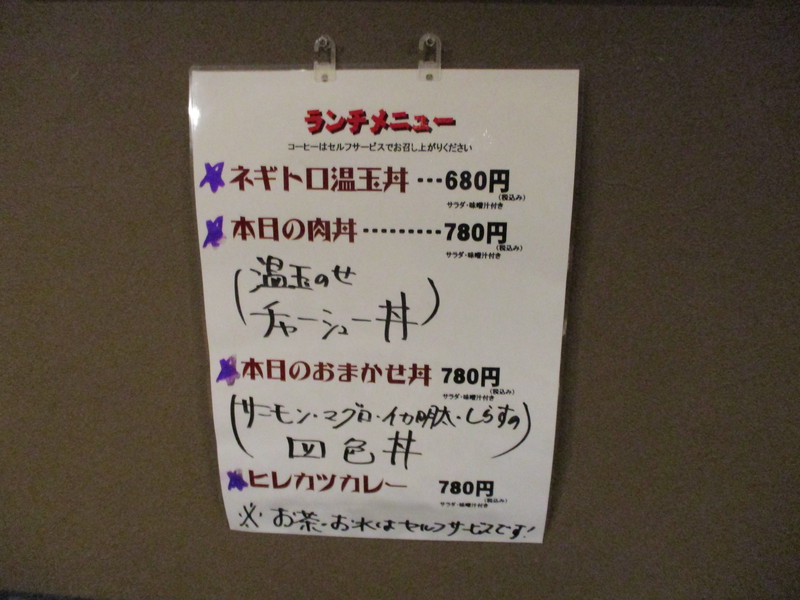 ランチメニュー
コーヒーはセルフサービスでお召し上がりください
ネギトロ温玉丼 ･･･680円
(税込み)
サラダ・味噌汁付き
本日の肉丼 ･････････780円
(税込み)
サラダ・味噌汁付き
(温玉のせ
チャーシュー丼)
本日のおまかせ丼 780円
(税込み)
サラダ・味噌汁付き
(サーモン・マグロ・イカ明太・しらすの
四色丼)
ヒレカツカレー 780円
(税込み)
サラダ・味噌汁付き
※ お茶・お水はセルフサービスです!